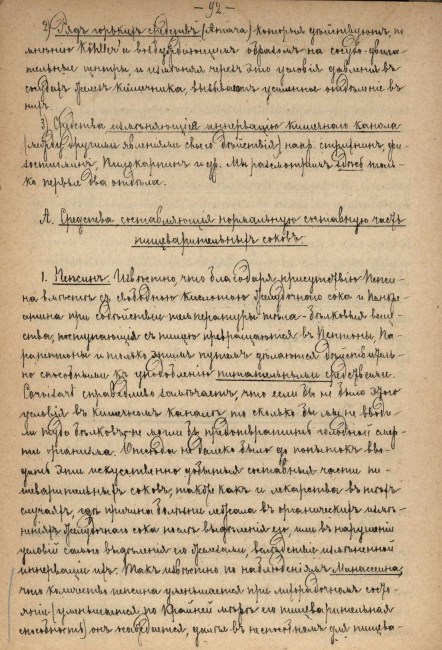 — 92 —
2) Рядъ горькихъ средствъ (Amara) которыя дѣйствуютъ, по
мнѣнію Köhler'а возбуждающимъ образомъ на сосудо-двига-
тельные центры и измѣняя черезъ это условія давленія въ
сосудахъ железъ кишечника, вызываютъ усиленное отдѣленіе въ
нихъ.
3) Средства измѣняющія иннервацію кишечнаго канала
(между другими явленіями своего дѣйствія) напр. стрихнинъ, фи-
зостигминъ, Пилокарпинъ и др. Мы разсмотримъ здѣсь толь-
ко первые два отдѣла.
А. Средства составляющія нормальную составную часть
пищеварительныхъ соковъ.
1. Пепсинъ. Извѣстно, что благодаря присутствію Пепси-
на вмѣстѣ съ свободною кислотою желудочнаго сока и Панкре-
атина при содѣйствіи температуры тѣла – бѣлковыя веще-
ства, поступающія съ пищею превращаются въ Пептоны, Па-
рапептоны и только этимъ путемъ дѣлаются дѣйствитель-
но способными къ уподобленію питательными средствами.
Corvisart справедливо замѣчаетъ, что если бы не было этого
условія въ кишечномъ каналѣ, то сколько бы мы не вводи-
ли туда бѣлковъ, не могли бы предотвратить голодной смер-
ти организма. Отсюда не далеко было до попытокъ вво-
дить эти искусственно добытыя составныя части пи-
щеварительныхъ соковъ, также какъ и лекарства въ тѣхъ
случаяхъ, гдѣ причина болѣзни лежала въ органическихъ измѣ-
неніяхъ желудочнаго сока послѣ выдѣленія его, или въ нарушеніи
условій самого выдѣленія его железами, вслѣдствіе измѣненной
иннерваціи ихъ. Такъ извѣстно по наблюденіямъ Манассеина,
что количество пепсина уменьшается при лихорадочномъ состо-
яніи (уменьшается по крайней мѣрѣ его пищеварительная
способность) онъ въ неспособномъ для пищева-